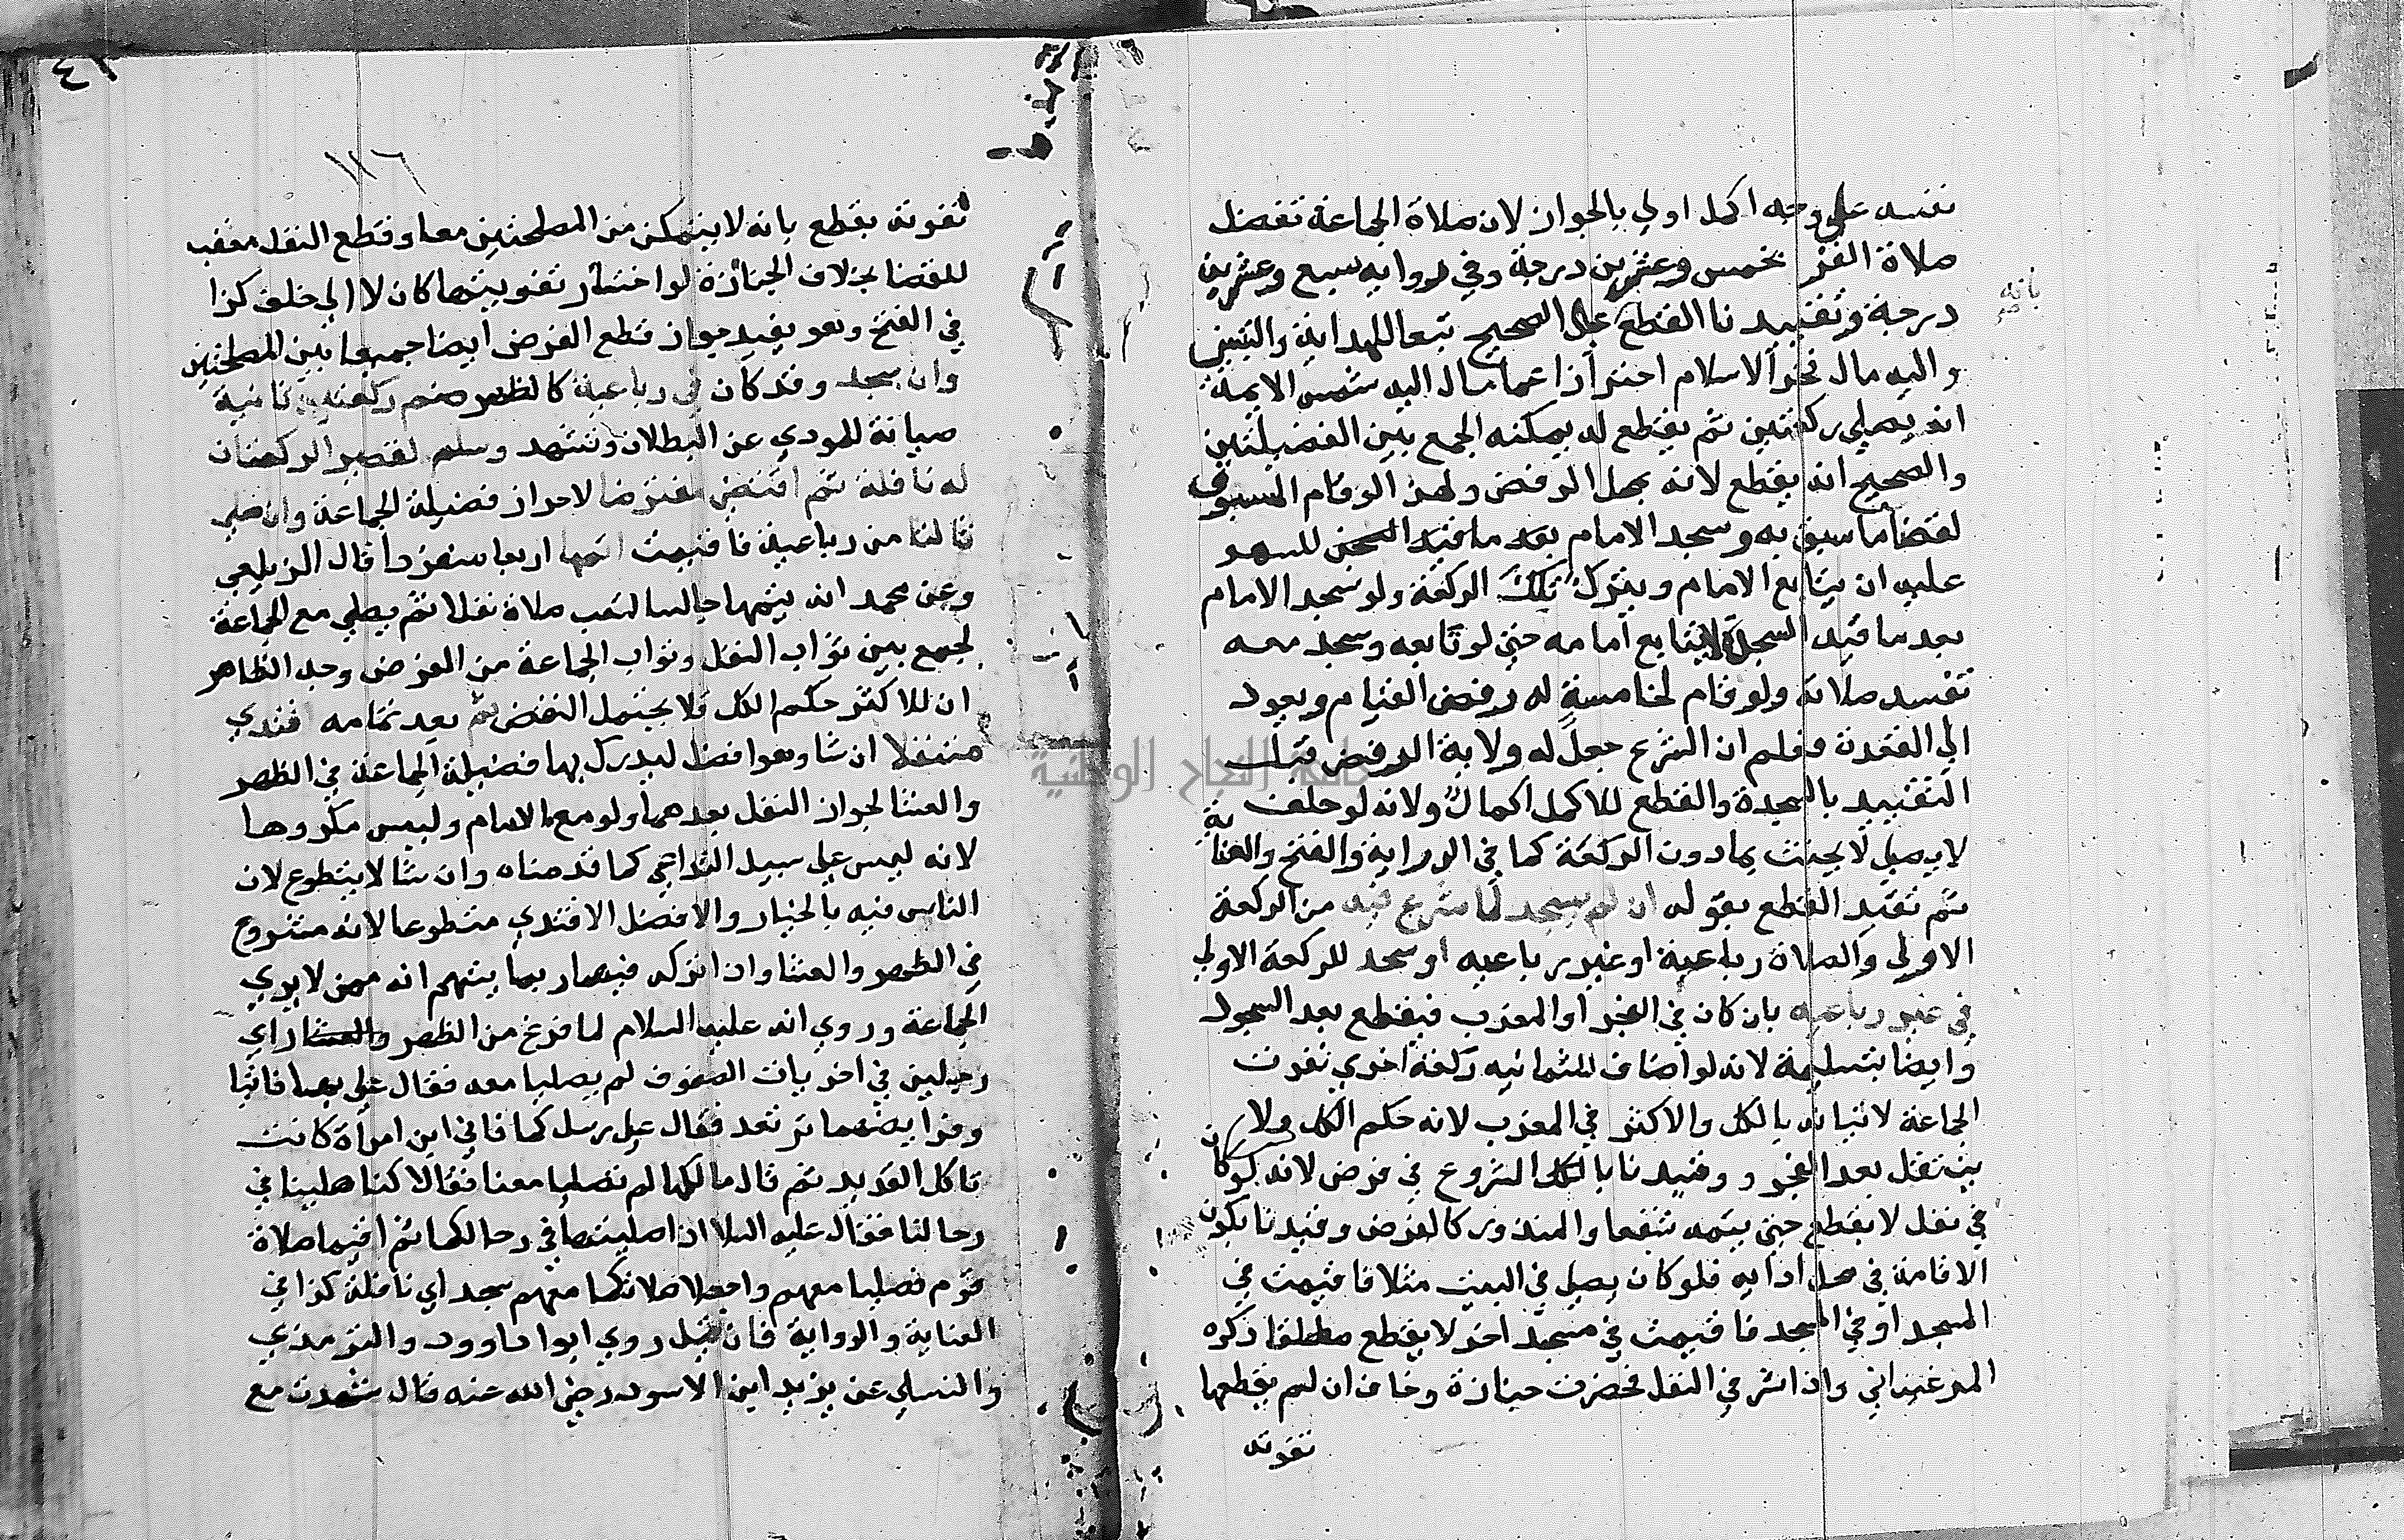 نفسه على وجه اكمل اولي بالجواز لان صلاة الجماعة تفضل
صلاة الفذ بخمس وعشرين درجة وفي رواية سبع وعشرين
درجة وتقييدنا القطع على الصحيح تبعا للهداية والتبيين
بانه
واليه مال فخر الاسلام احترازا عما مال اليه شمس الايمة
انه يصلي ركعتين ثم يقطع له يمكنه الجمع بين الفضيلتين
والصحيح انه يقطع لانه بمحل الرفض ولهذا لو قام المسبوق
لقضا ما سبق به وسجد الامام بعد ما قيد للسهو
عليه ان يتابع الامام ويترك تلك الركعة ولو سجد الامام
بعد ما قيد السجدة لا يتابع امامه حتى لو تابعه وسجد معه
تفسد صلاته ولو قام لخامسة له رفض القيام ويعود
الي القعدة فعلم ان الشرع جعل له ولاية الرفض قبل
التقييد بالسجدة والقطع للاكمل اكمال ولانه لو حلف
لا يصلي لا يحنث بما دون الركعة كما في الدراية والفتح والعناية
ثم تقيد القطع بقوله ان لم يسجد لما شرع فيه من الركعة
الاولي والصلاة رباعية او غير رباعيه او سجد للركعة الاولي
في غير رباعيه بان كان في الفجر او المغرب فيقطع بعد السجود
وايضا بتسليمة لانه لو اضاف للثمانيه ركعة اخري تفوت
الجماعة لاتيانه بالكل والاكثر في المغرب لانه حكم الكل ولا
يتنفل بعد الفجر وقيدنا بالشروع في فرض لانه لو كان
في نفل لا يقطع حتى يتمه شفعا والمنذور كالفرض وقيدنا بكون
الاقامة في محل ادايه فلو كان يصلي في البيت مثلا فاقيمت في
المسجد او في المسجد فاقيمت في مسجد اخر لا يقطع مطلقا ذكره
المرغيناني واذا شرع في النفل فحضرت جنازة وخاف ان لم يقطعها
تفوته
١١٦
تفوته يقطع بانه لا يتمكن من المصلحتين معا وقطع النفل معقب
للقضا بخلاف الجنازة لو اختار تفويتها كان لا الي خلف كذا
في الفتح وهو يفيد جواز قطع الفرض ايضا جمعا بين المصلحتين
وان سجد وقد كان في رباعية كالظهر ضم ركعة ثانية
صيانة للمودي عن البطلان وتشهد وسلم لتصير الركعتان
له نافلة ثم اقتدى مفترضا لاحراز فضيلة الجماعة وان صلى
ثالثا من رباعية فاقيمت اتمها اربعا منفردا قال الزيلعي
وعن محمد انه يتمها جالسا لتقلب صلاة نفلا ثم يصلي مع الجماعة
لجمع بين ثواب النفل وثواب الجماعة من الفرض وجه الظاهر
ان للاكثر حكم الكل فلا يحتمل النقض ثم بعد تمامه اقتدي
متنفلا ان شا وهو افضل ليدرك بها فضيلة الجماعة في الظهر
والعشا لجواز النفل بعدهما ولو مع الامام وليس مكروها
لانه ليس على سبيل التداعي كما قدمناه وان شا لا يتطوع لان
الناس فيه بالخيار والافضل الاقتدي متطوعا لانه مشروع
في الظهر والعشا وان تركه فيه ربما يتهم انه ممن لا يري
الجماعة وروي انه عليه السلام لما فرغ من الظهر راي
رجلين في اخريات الصفوف لم يصليا معه فقال علي بهما فاتيا
وفرايصهما ترتعد فقال على رسلكما فاني ابن امراة كانت
تاكل القديد ثم قال ما لكما لم تصليا معنا فقالا كنا صلينا في
رحالنا فقال عليه السلام اذا صليتما في رحالكما ثم اتيتما صلاة
قوم فصليا معهم واجعلا صلاتكما معهم سبحة اي نافلة كذا في
العناية والدراية فان قيل روي ابوا داوود والترمذي
والنسائي عن يزيد ابن الاسود رضي الله عنه قال شهدت مع
جامعة النجاح الوطنية